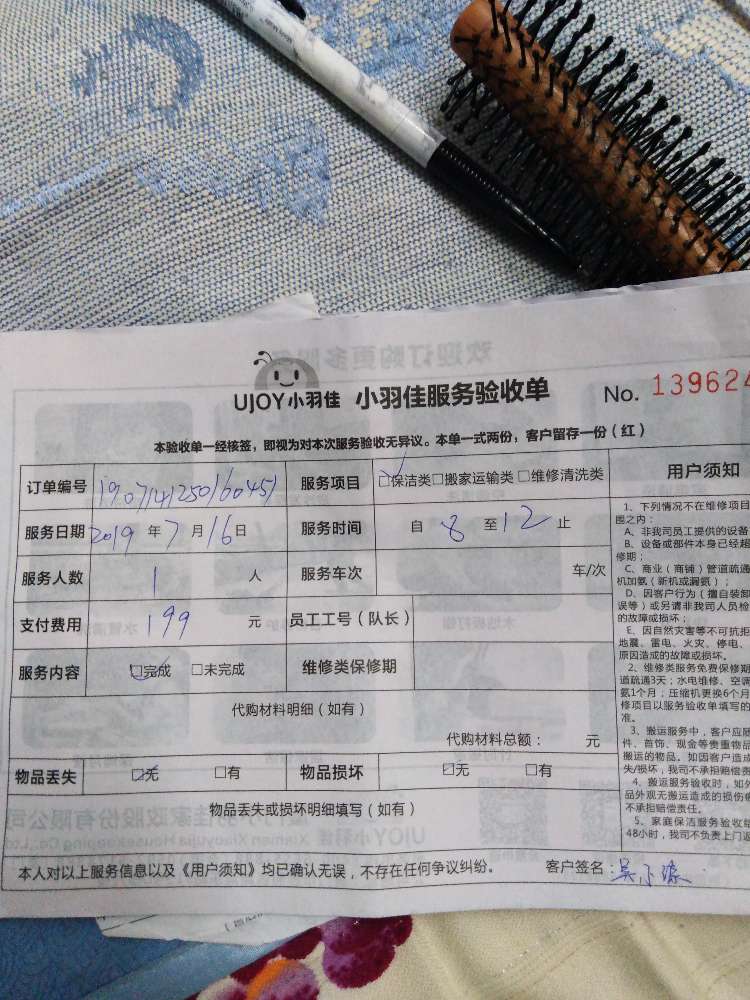 UJOY小羽佳 小羽佳服务验收单 No. 139624
本验收单一经核签，即视为对本次服务验收无异议。本单一式两份，客户留存一份（红）
订单编号 服务项目 ☑保洁类□搬家运输类□维修清洗类
服务日期 2019 年 7 月 16 日 服务时间 自 8 至 12 止
服务人数 1 人 服务车次 车/次
支付费用 199 元 员工工号（队长）
服务内容 ☑完成 □未完成 维修类保修期
代购材料明细（如有）
代购材料总额： 元
物品丢失 ☑无 □有 物品损坏 ☑无 □有
物品丢失或损坏明细填写（如有）
本人对以上服务信息以及《用户须知》均已确认无误，不存在任何争议纠纷。 客户签名：
用户须知
1、下列情况不在维修项目
围之内：
A、非我司员工提供的设备
B、设备或部件本身已经超
修期；
C、商业（商铺）管道疏通
机加氨（新机或漏氨）；
D、因客户行为（擅自装卸
误等）或另请非我司人员检
的故障或损坏；
E、因自然灾害等不可抗拒
地震、雷电、火灾、停电、
原因造成的故障或损坏。
2、维修类服务免费保修期
道疏通3天；水电维修、空调
氨1个月；压缩机更换6个月
修项目以服务验收单填写的
准。
3、搬运服务中，客户应随
件、首饰、现金等贵重物品
搬运的物品。如因客户造成
失/损坏，我司不承担赔偿责
4、搬运服务验收时，如外
品外观无搬运造成的损伤
不承担赔偿责任。
5、家庭保洁服务验收单
48小时，我司不负责上门返